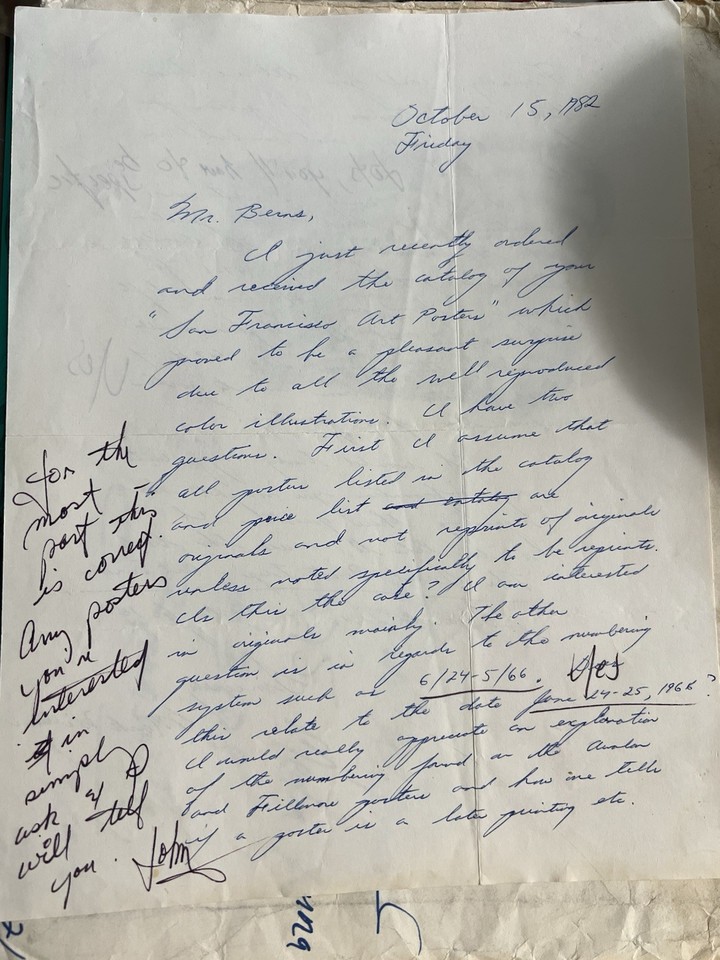 October 15, 1982
Friday
Mr. Berns,
I just recently ordered
and received the catalog of your
"San Francisco Art Posters" which
proved to be a pleasant surprise
due to all the well reproduced
color illustrations. I have two
questions. First I assume that
all poster listed in the catalog
and price list and catalog are
originals and not reprints of originals
unless noted specifically to be reprints.
Is this the case? I am interested
in originals mainly. The other
question is in regards to the numbering
system such as 6/24-5/66. Does
this relate to the date June 24-25, 1966?
I would really appreciate an explanation
of the numbering found on the Avalon
and Fillmore posters and how one tells
if a poster is a later printing etc.
for the
most
part this
is correct.
Any posters
you're
interested
in
simply
ask & I
will tell
you. John
Yes